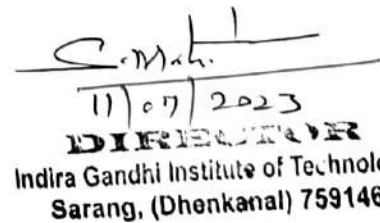 11/07/2023
DIRECTOR
Indira Gandhi Institute of Technolo
Sarang, (Dhenkanal) 759146